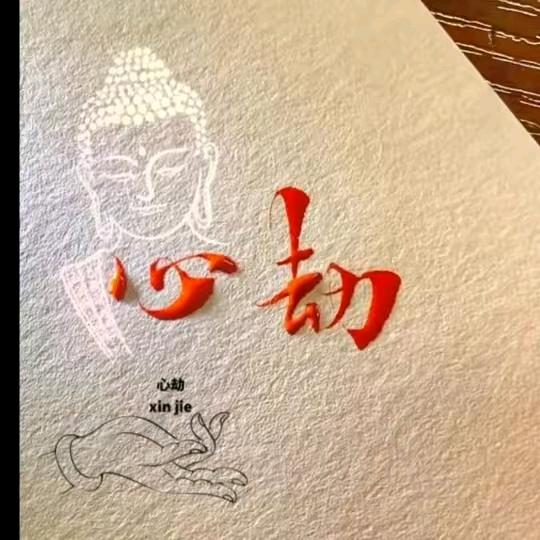 心劫
心劫
xin jie